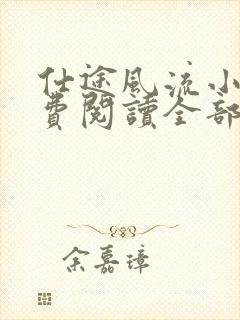 仕途風流小
費閱讀全部
余嘉璋